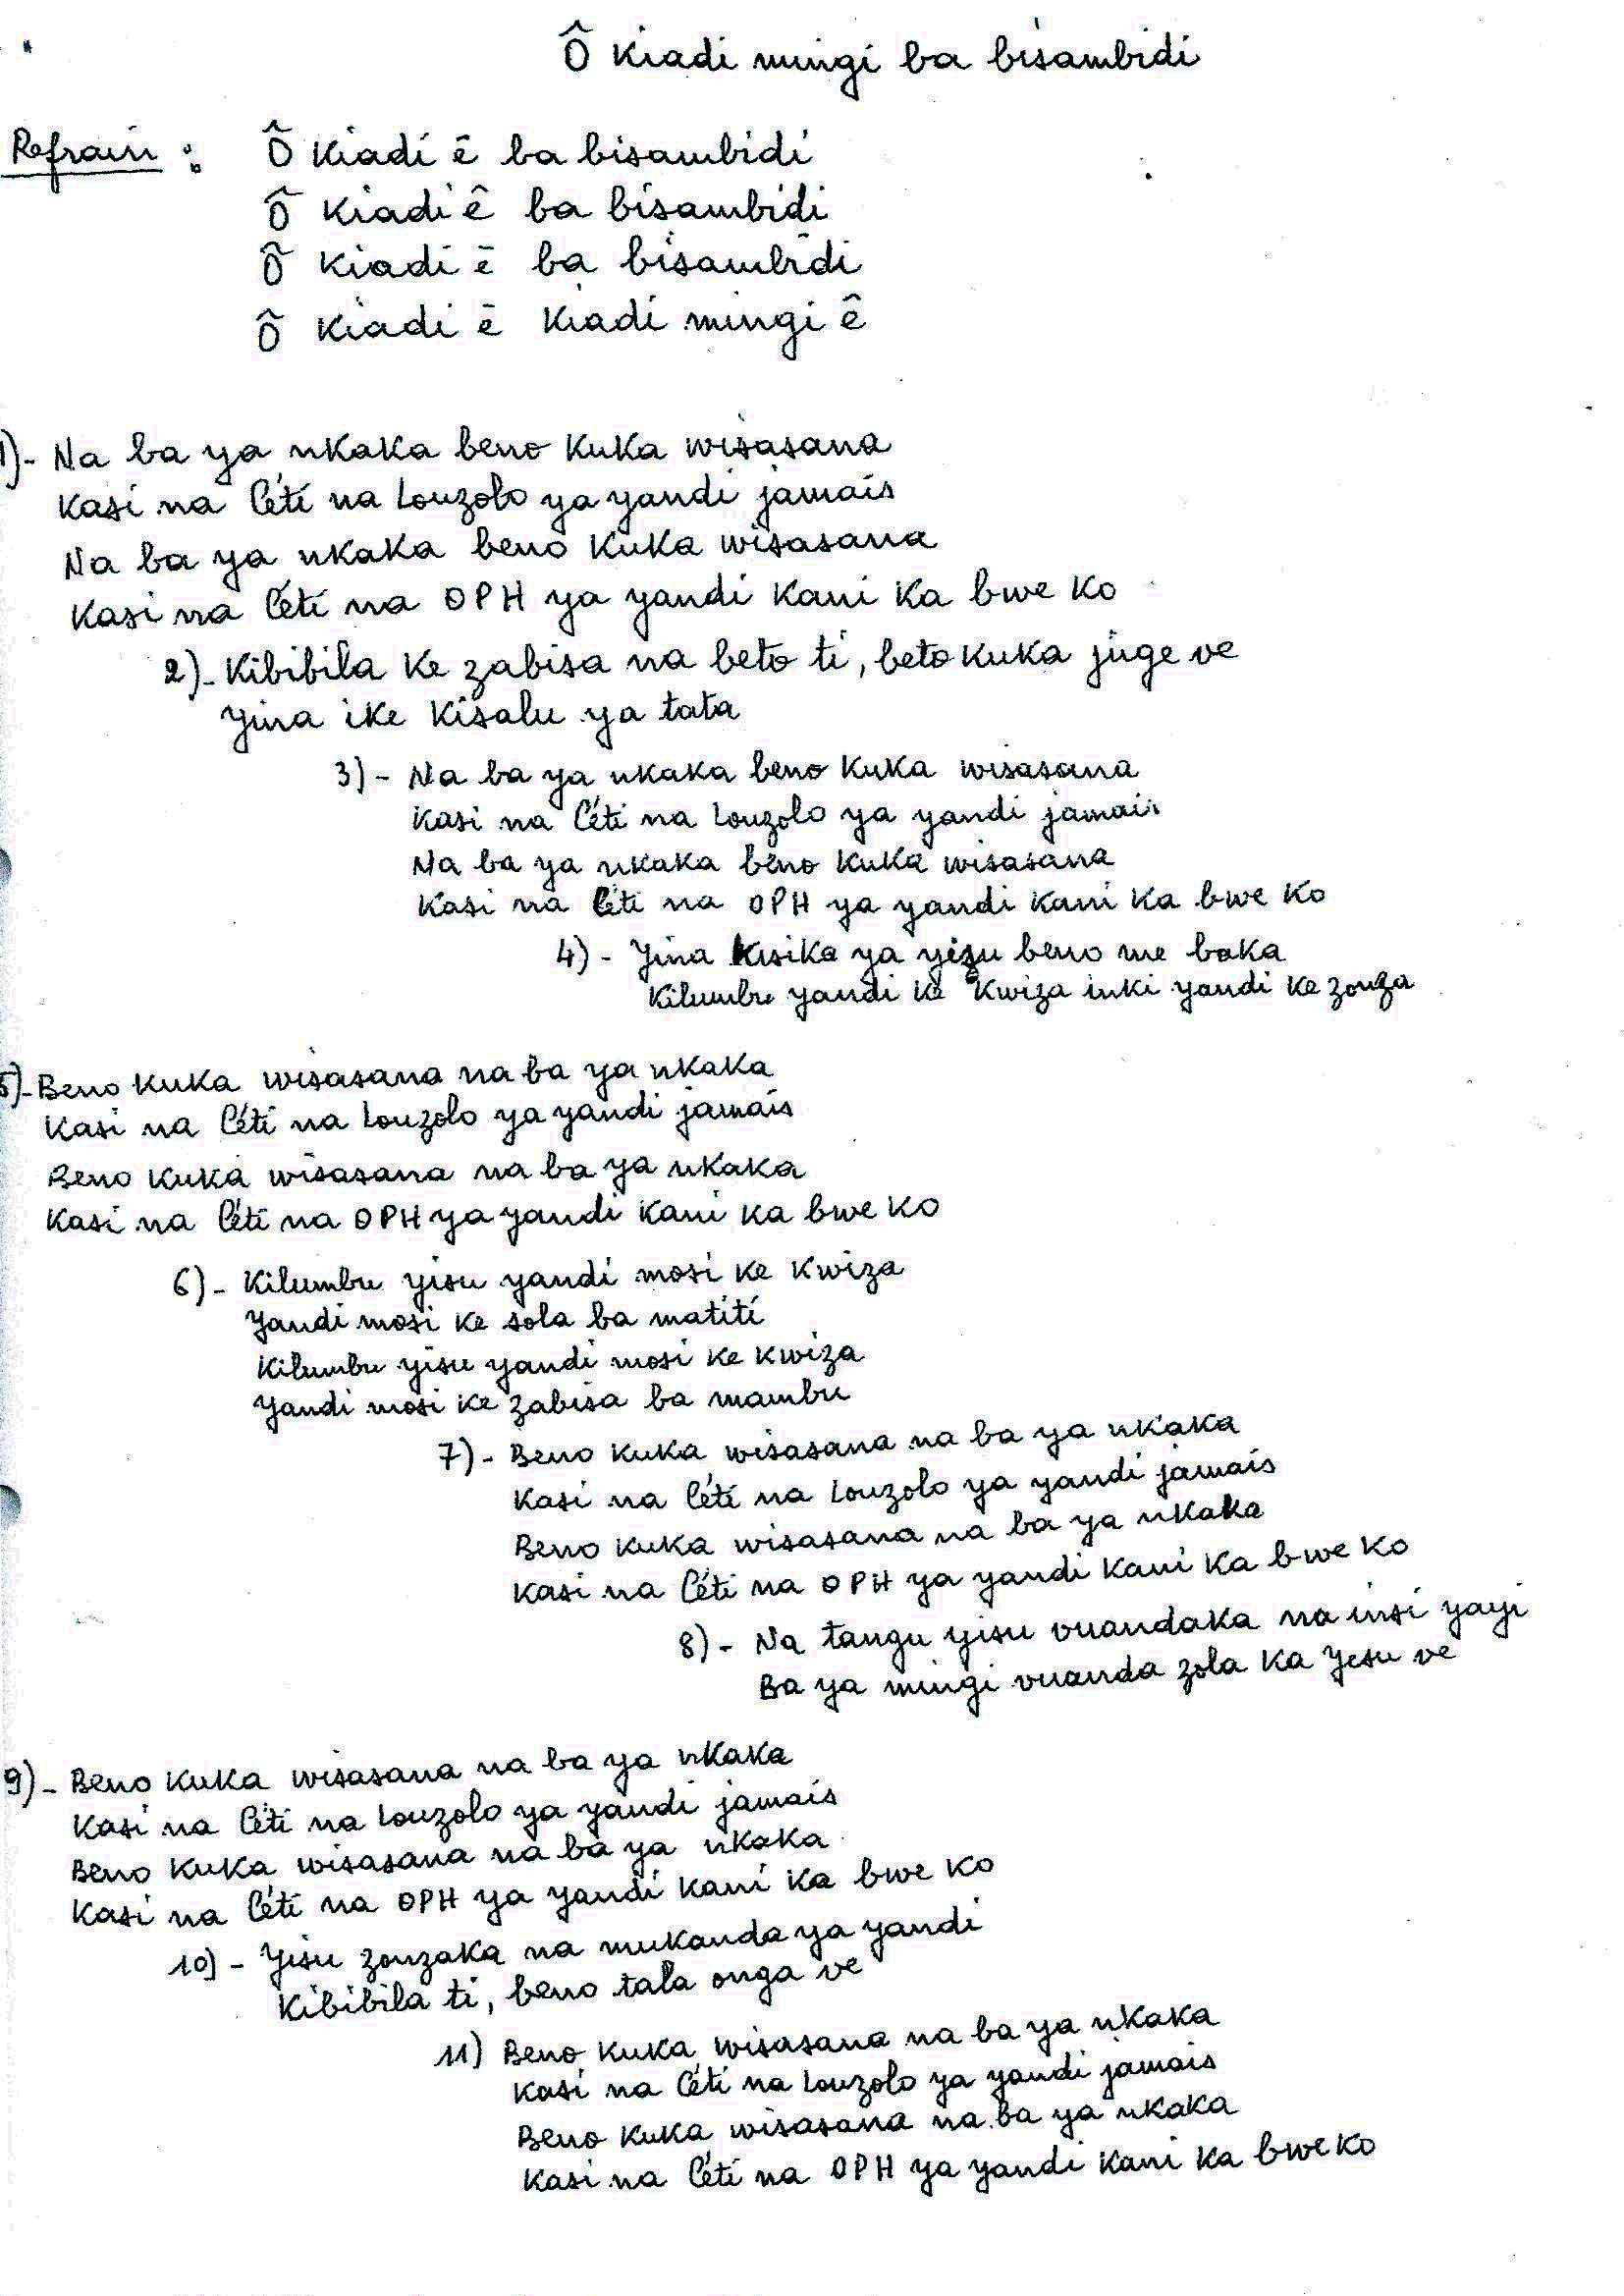 Ô Kiadi mingi ba bisambidi
Refrain : Ô Kiadi ê ba bisambidi
Ô Kiadi ê ba bisambidi
Ô Kiadi ê ba bisambidi
Ô Kiadi ê Kiadi mingi ê
1)- Na ba ya nkaka beno Kuka wisasana
Kasi na Céti na Louzolo ya yandi jamais
Na ba ya nkaka beno Kuka wisasana
Kasi na Céti na OPH ya yandi Kani Ka bwe Ko
2)- Kibibila Ke zabisa na beto ti, beto Kuka juge ve
Yina iKe Kisalu ya tata
3)- Na ba ya nkaka beno Kuka wisasana
Kasi na Céti na Louzolo ya yandi jamais
Na ba ya nkaka beno Kuka wisasana
Kasi na Céti na OPH ya yandi Kani Ka bwe Ko
4)- Yina Kisika ya yisu beno me baka
Kilumbu yandi Ke Kwiza inki yandi Ke zonza
5)- Beno Kuka wisasana na ba ya nkaka
Kasi na Céti na Louzolo ya yandi jamais
Beno Kuka wisasana na ba ya nkaka
Kasi na Céti na OPH ya yandi Kani Ka bwe Ko
6)- Kilumbu yisu yandi mosi Ke Kwiza
Yandi mosi Ke sola ba matiti
Kilumbu yisu yandi mosi Ke Kwiza
Yandi mosi Ke zabisa ba mambu
7)- Beno Kuka wisasana na ba ya nkaka
Kasi na Céti na Louzolo ya yandi jamais
Beno Kuka wisasana na ba ya nkaka
Kasi na Céti na OPH ya yandi Kani Ka bwe Ko
8)- Na tangu yisu vuandaka na insi yayi
Ba ya mingi vuanda zola Ka Yesu ve
9)- Beno Kuka wisasana na ba ya nkaka
Kasi na Céti na Louzolo ya yandi jamais
Beno Kuka wisasana na ba ya nkaka
Kasi na Céti na OPH ya yandi Kani Ka bwe Ko
10)- Yisu zonzaka na mukanda ya yandi
Kibibila ti, beno tala onga ve
11) Beno Kuka wisasana na ba ya nkaka
Kasi na Céti na Louzolo ya yandi jamais
Beno Kuka wisasana na ba ya nkaka
Kasi na Céti na OPH ya yandi Kani Ka bwe Ko